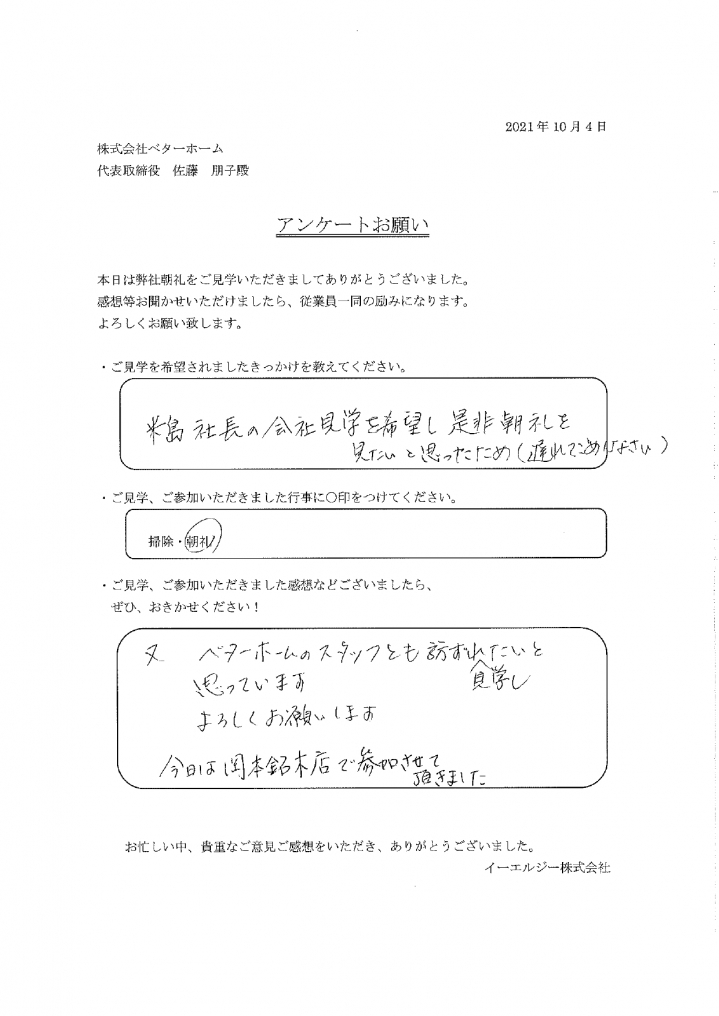 2021年10月4日
株式会社ベターホーム
代表取締役　佐藤　朋子殿
アンケートお願い
本日は弊社朝礼をご見学いただきましてありがとうございました。
感想等お聞かせいただけましたら、従業員一同の励みになります。
よろしくお願い致します。
・ご見学を希望されましたきっかけを教えてください。
米島社長の会社見学を希望し是非朝礼を
見たいと思ったため(遅れてごめんなさい)
・ご見学、ご参加いただきました行事に〇印をつけてください。
掃除・朝礼
・ご見学、ご参加いただきました感想などございましたら、
ぜひ、おきかせください！
又　ベターホームのスタッフとも訪ずれたいと
見学し
思っています
よろしくお願いします
今日は岡本銘木店で参加させて
頂きました
お忙しい中、貴重なご意見ご感想をいただき、ありがとうございました。
イーエルジー株式会社